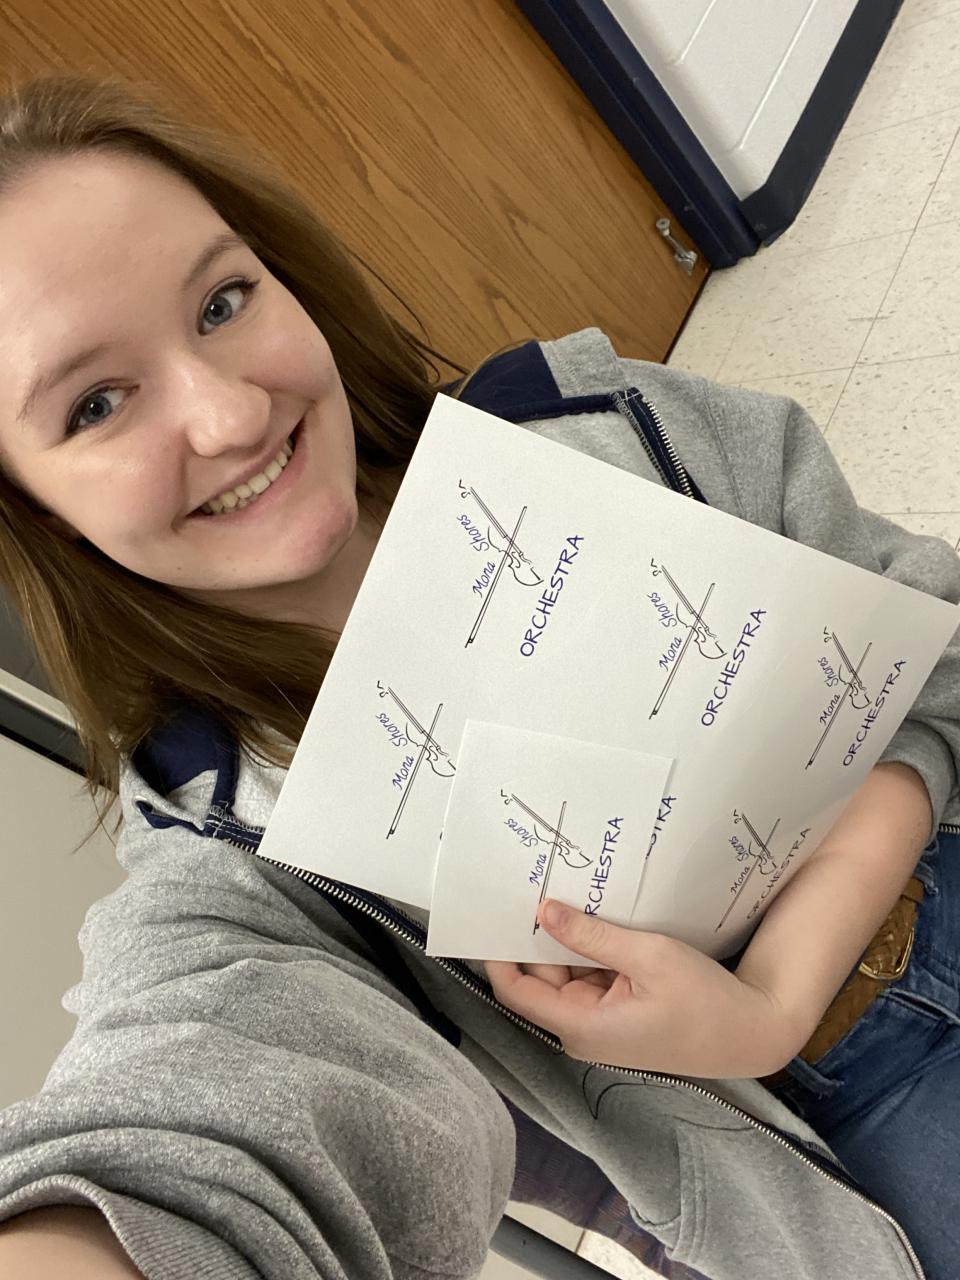 Mona Shores
ORCHESTRA
Mona Shores
ORCHESTRA
Mona Shores
ORCHESTRA
Mona Shores
Mona Shores
RCHESTRA
STRA
Mona Shores
ORCHESTRA